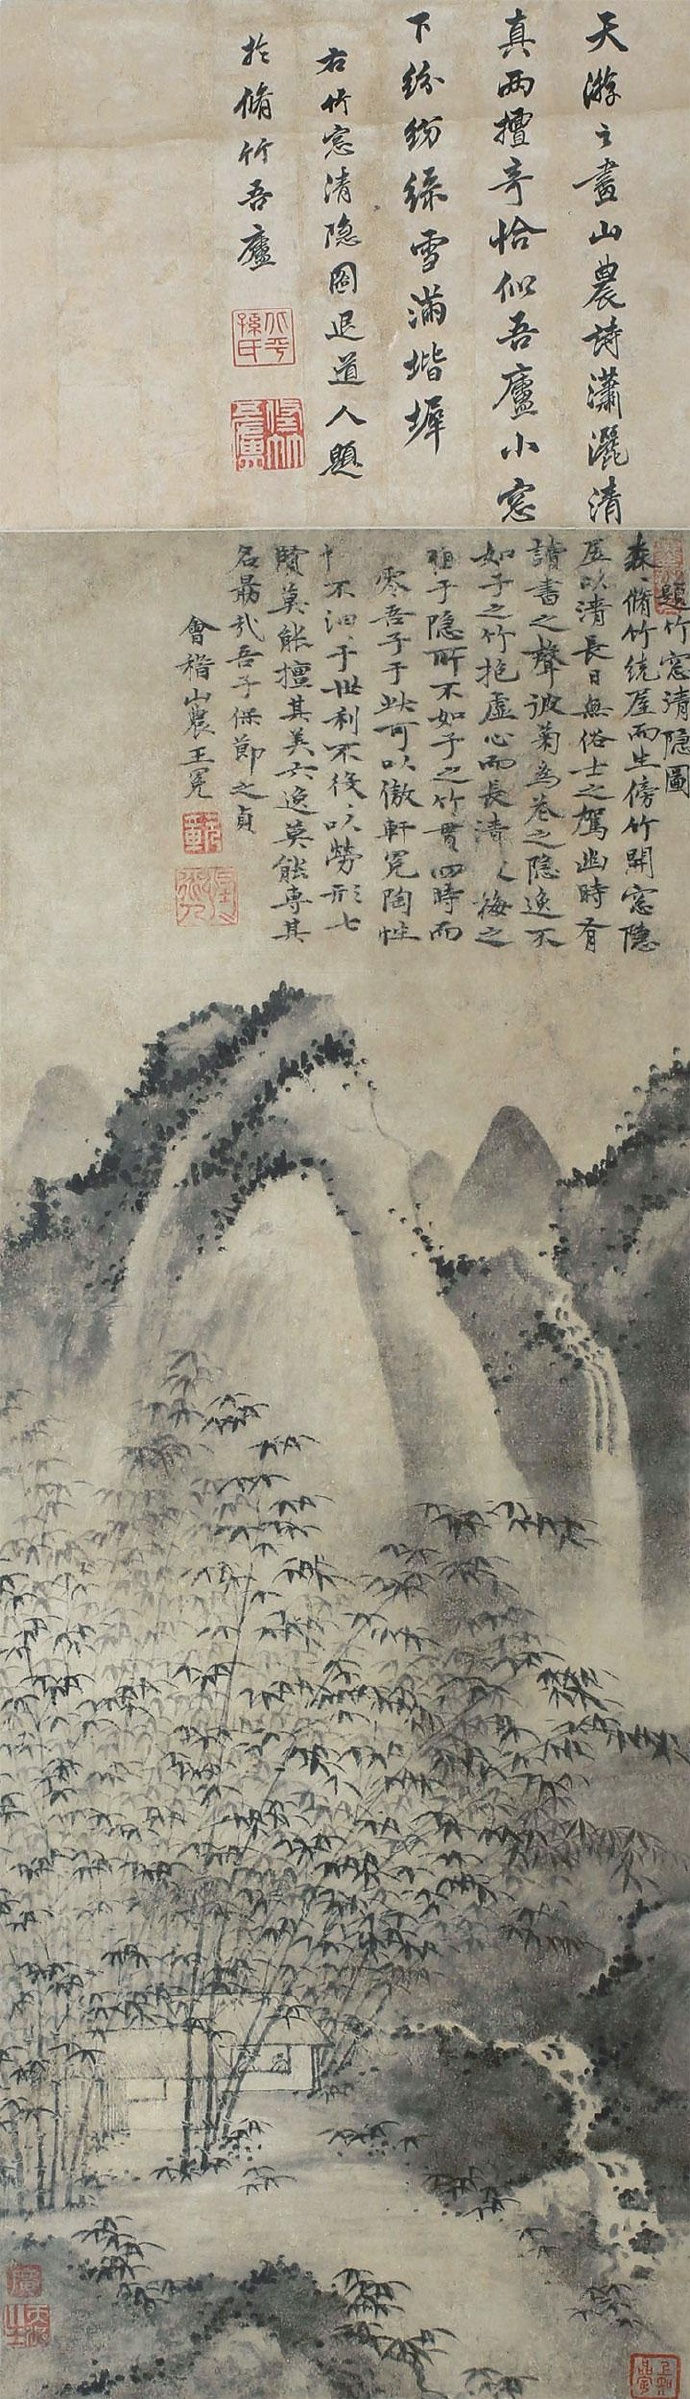 天游之畫山農詩瀟灑清
真兩擅奇恰似吾廬小窓
下紛紛綠雪滿堦墀
右竹窓清隐圖退道人題
於脩竹吾廬
北平孫氏
題竹窓清隐圖
森〻脩竹繞屋而生傍竹開窓隱
居以清長日無俗士之駕幽時有
讀書之聲彼菊為花之隐逸不
如子之竹抱虚心而長清
于隐所不如子之竹貫四時而
零吾子于此可以傲軒冕陶性
不汩〻于世利不役〻以勞形七
賢莫能擅其美六逸莫能専其
名最哉吾子保節之貞
會稽山農王冕